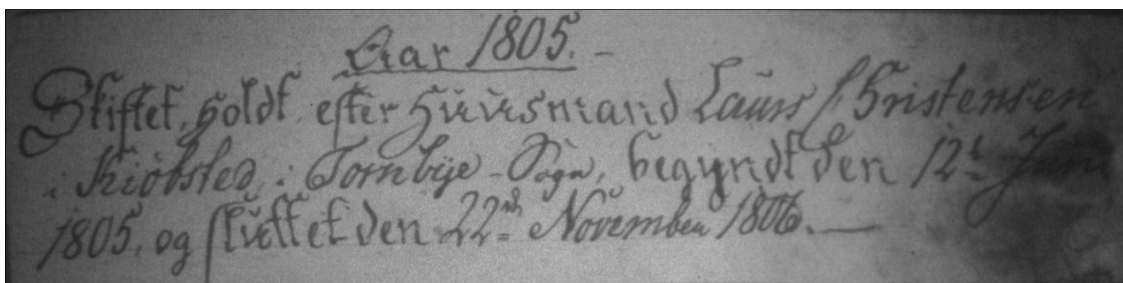 Aar 1805. –
Skiftet, holdt efter Huusmand Laurs Christensen
i Kiöbsted, i Tornbye – Sogn, begyndt den 12te Juni
1805, og sluttet den 22de November 1806. —